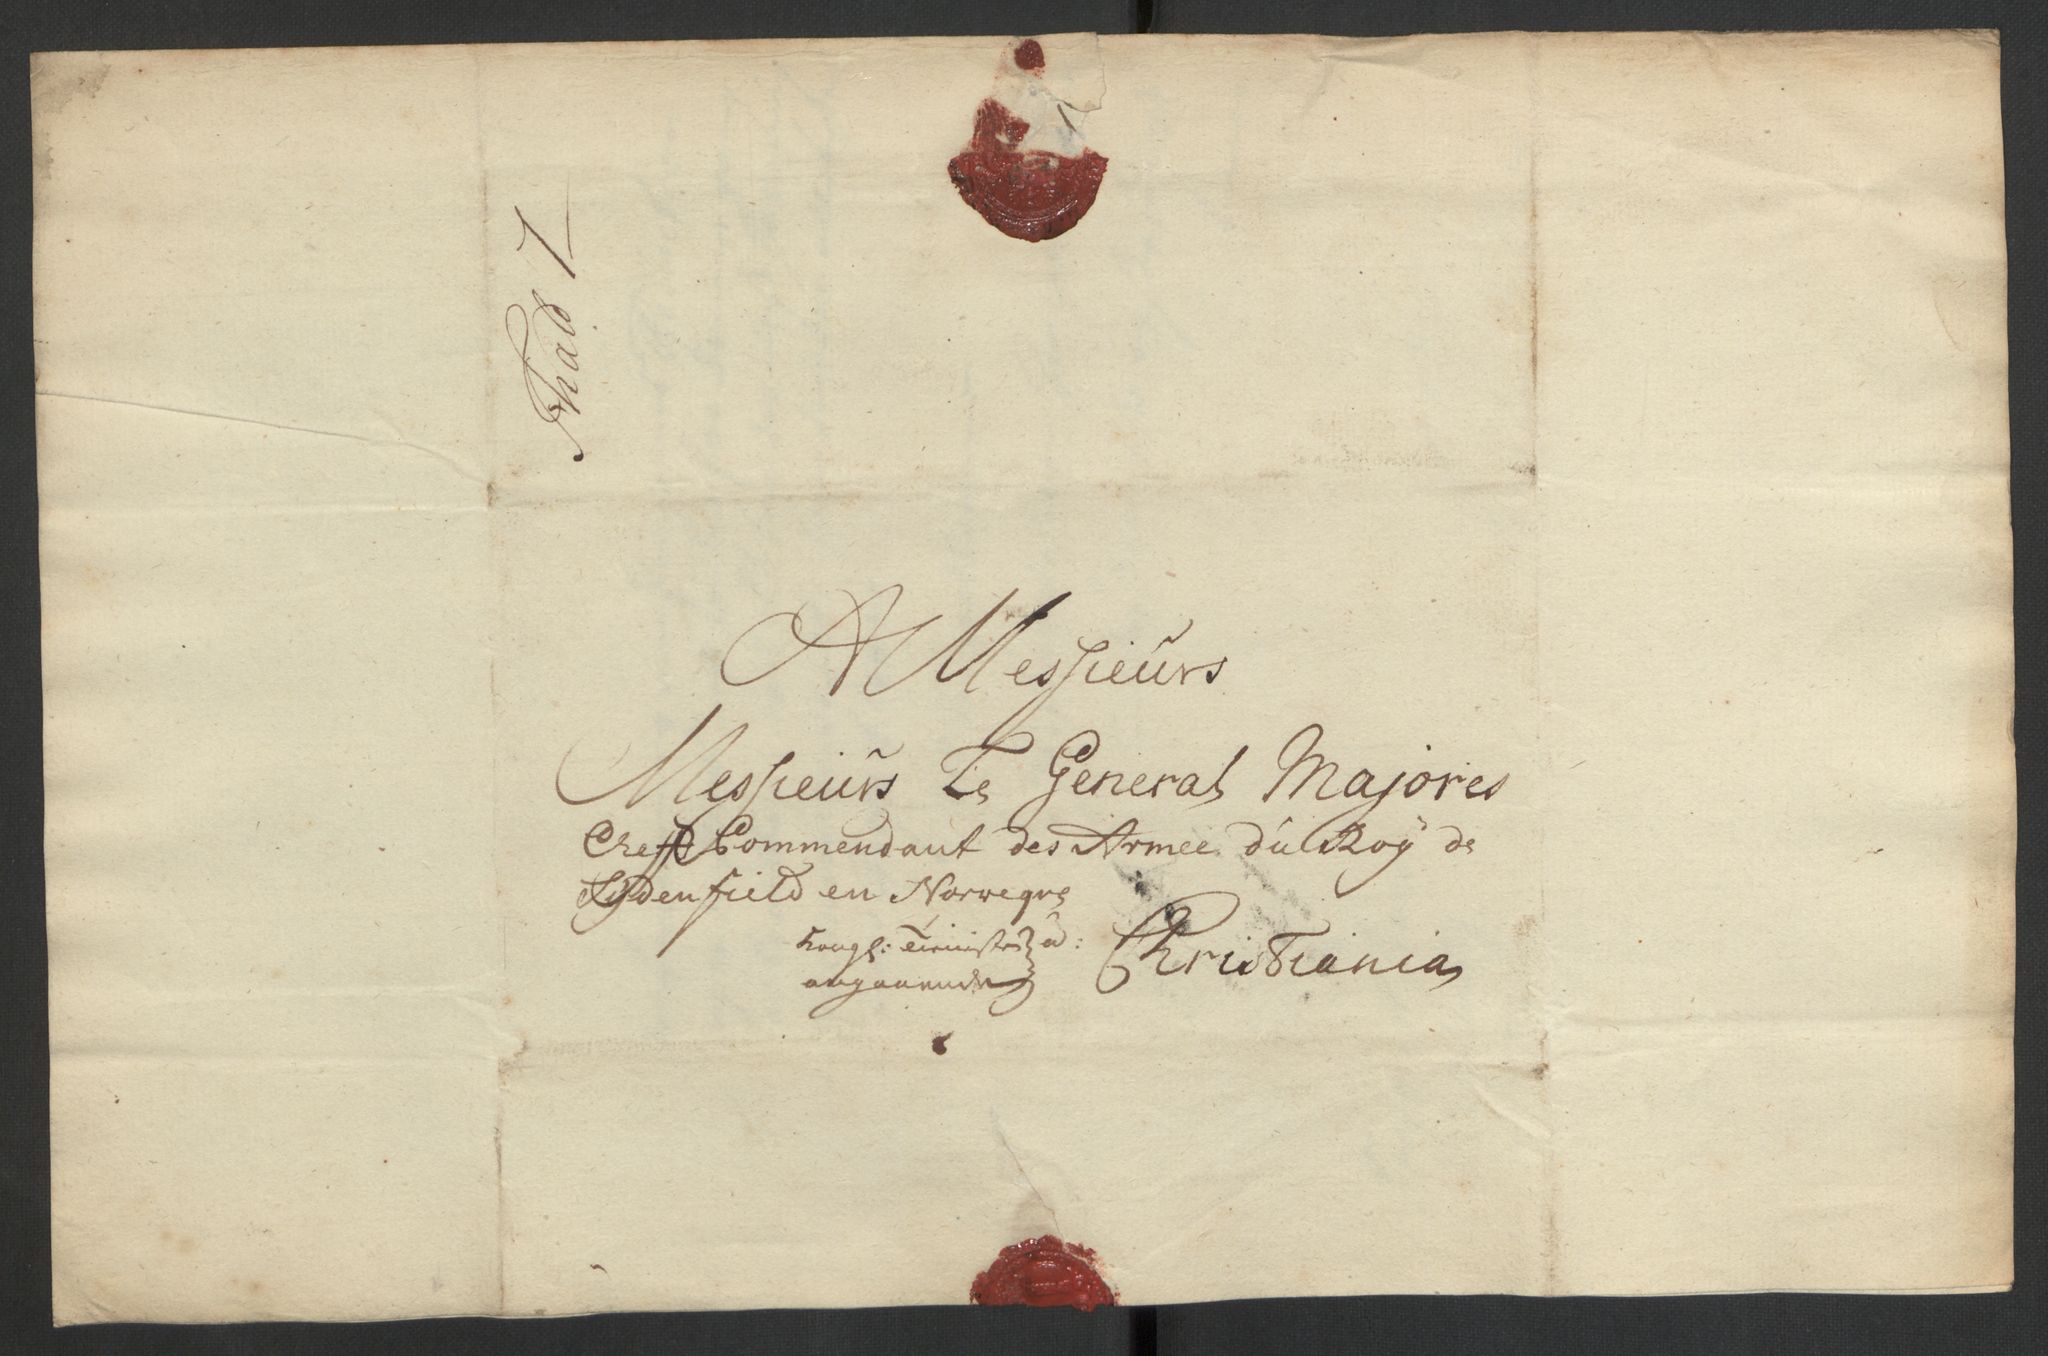 Frhald 7
A Messieurs
Messieurs Le General Majores
Cheff Commendant des Armee du Roy de
Sydenfield en Norwegue
Kongl: Tieniste
angaaende
a: Christiania